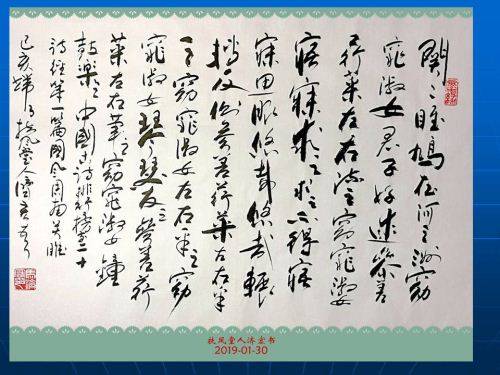 關々雎鳩在河之洲窈
窕淑女君子好逑參差
荇菜左右流之窈窕淑女
寤寐求之求之不得寤
寐思服悠哉悠哉輾
轉反側參差荇菜左右采
之窈窕淑女左右采之窈
窕淑女琴瑟友之參差荇
菜左右芼之窈窕淑女鐘
鼓樂之中國古詩排行榜二十
詩經第一篇國風周南关雎
己亥扶風堂人濟宏书
扶风堂人济宏书
2019-01-30